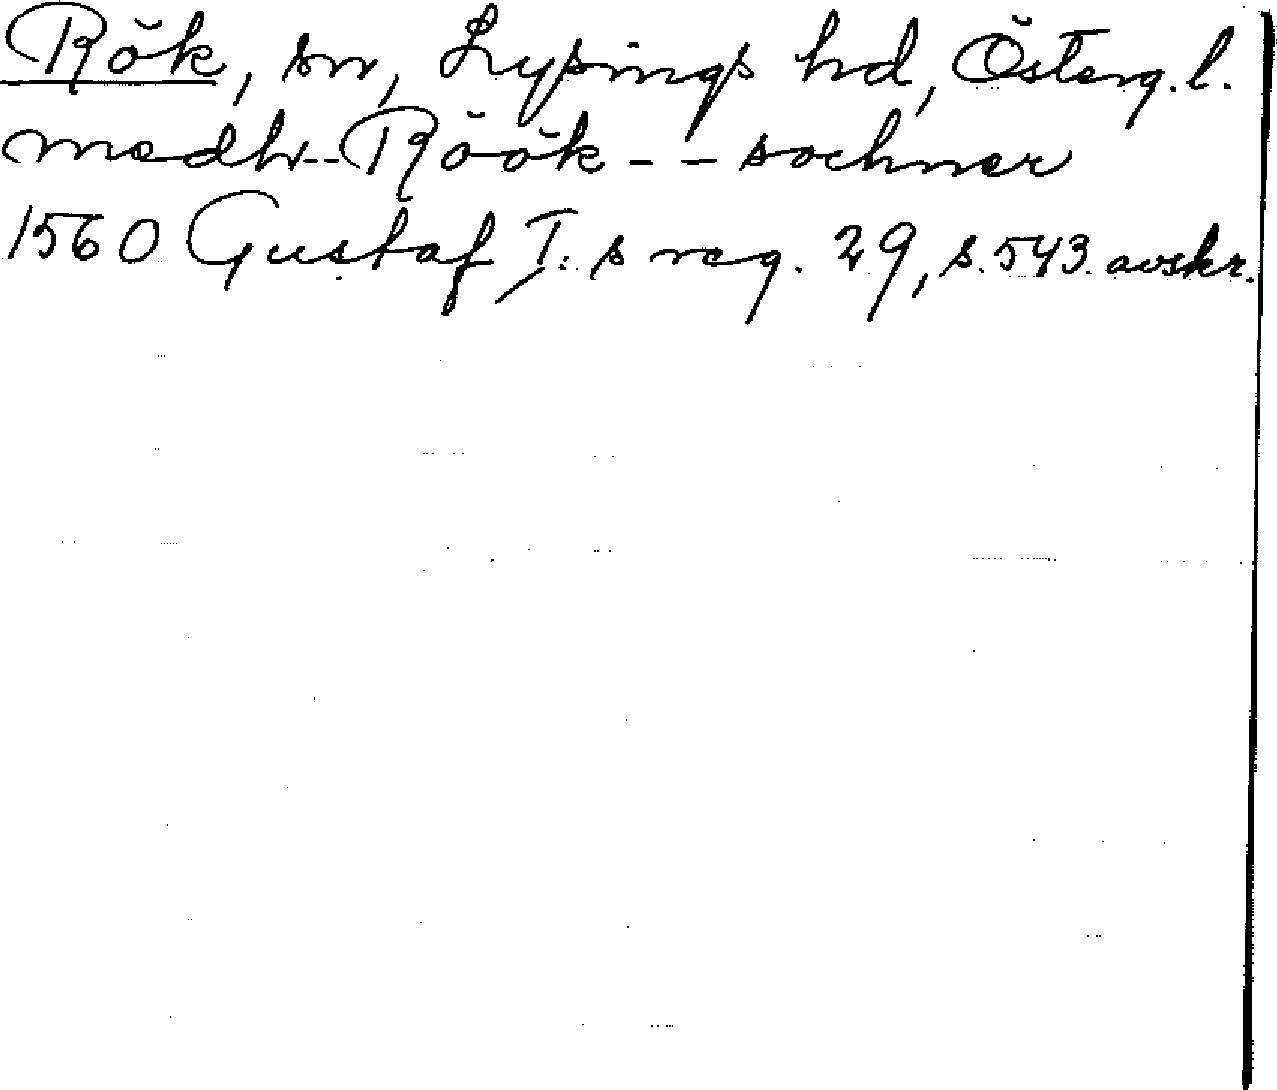 Rök, sn, Lysings hd, Österg.l.
medh -- Röök - - sochner
1560 Gustaf I:s reg. 29, s. 543. avskr.